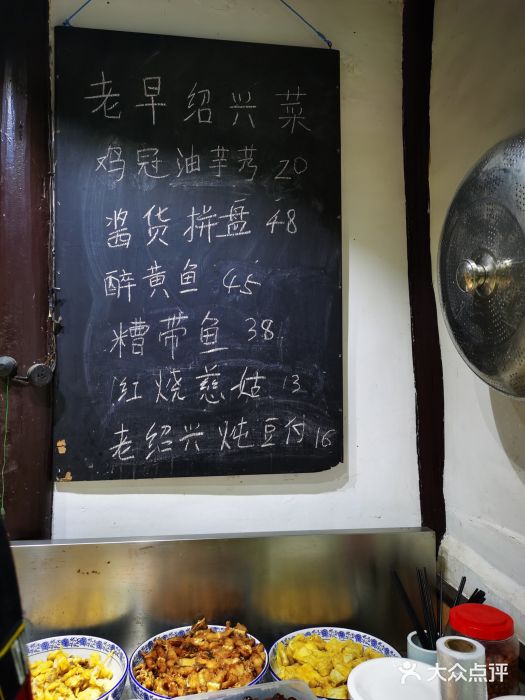 老早绍兴菜
鸡冠油芋艿 20
酱货拼盘 48
醉黄鱼 45
糟带鱼 38
红烧慈姑 13
老绍兴炖豆付 16
大众点评